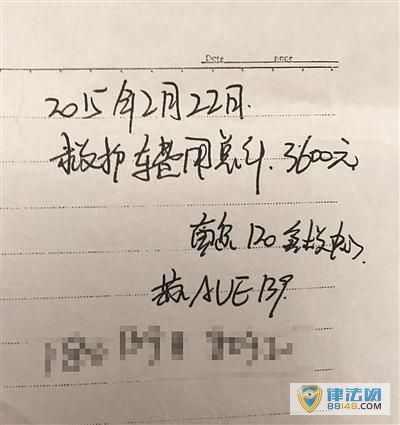 Date page
2015年2月22日.
救护车费用总计.3600元
120急救中心.
AUE139.
律法网
88148.com